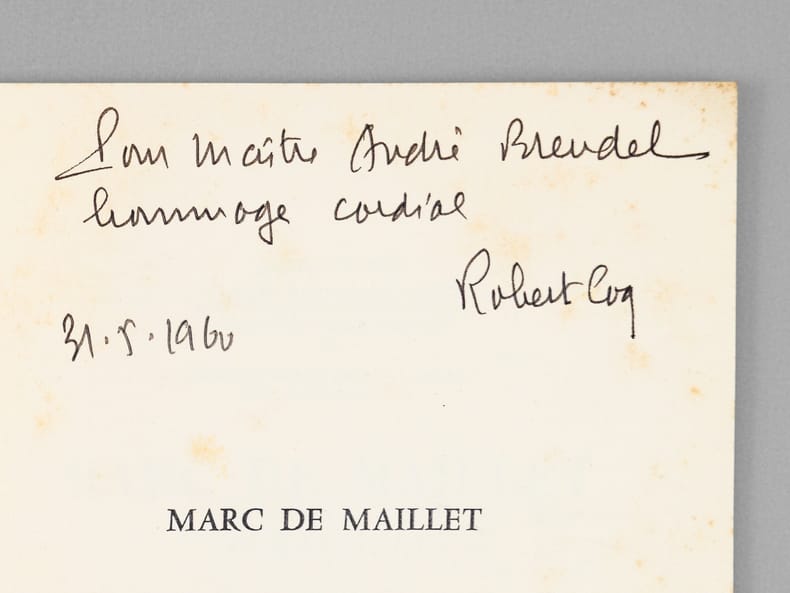 Pour Maître André Brendel
hommage cordial
Robert Coq
31.5.1960
MARC DE MAILLET